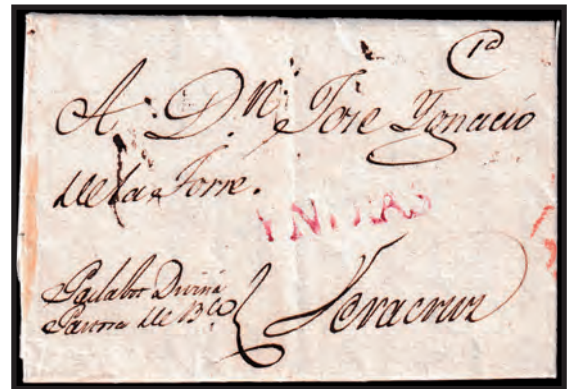 1a
A. Dn. Jose Ygnacio
de la Torre.
YNDIAS
Pailabot Divina
Pastora
Veracruz